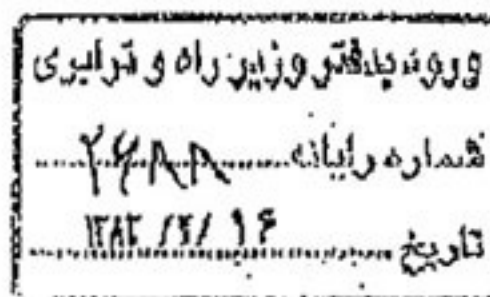 ورود بدفتر وزیر راه و ترابری
شماره رایانه ۲۶۸۸
تاریخ ۱۳۸۳/۳/۱۶